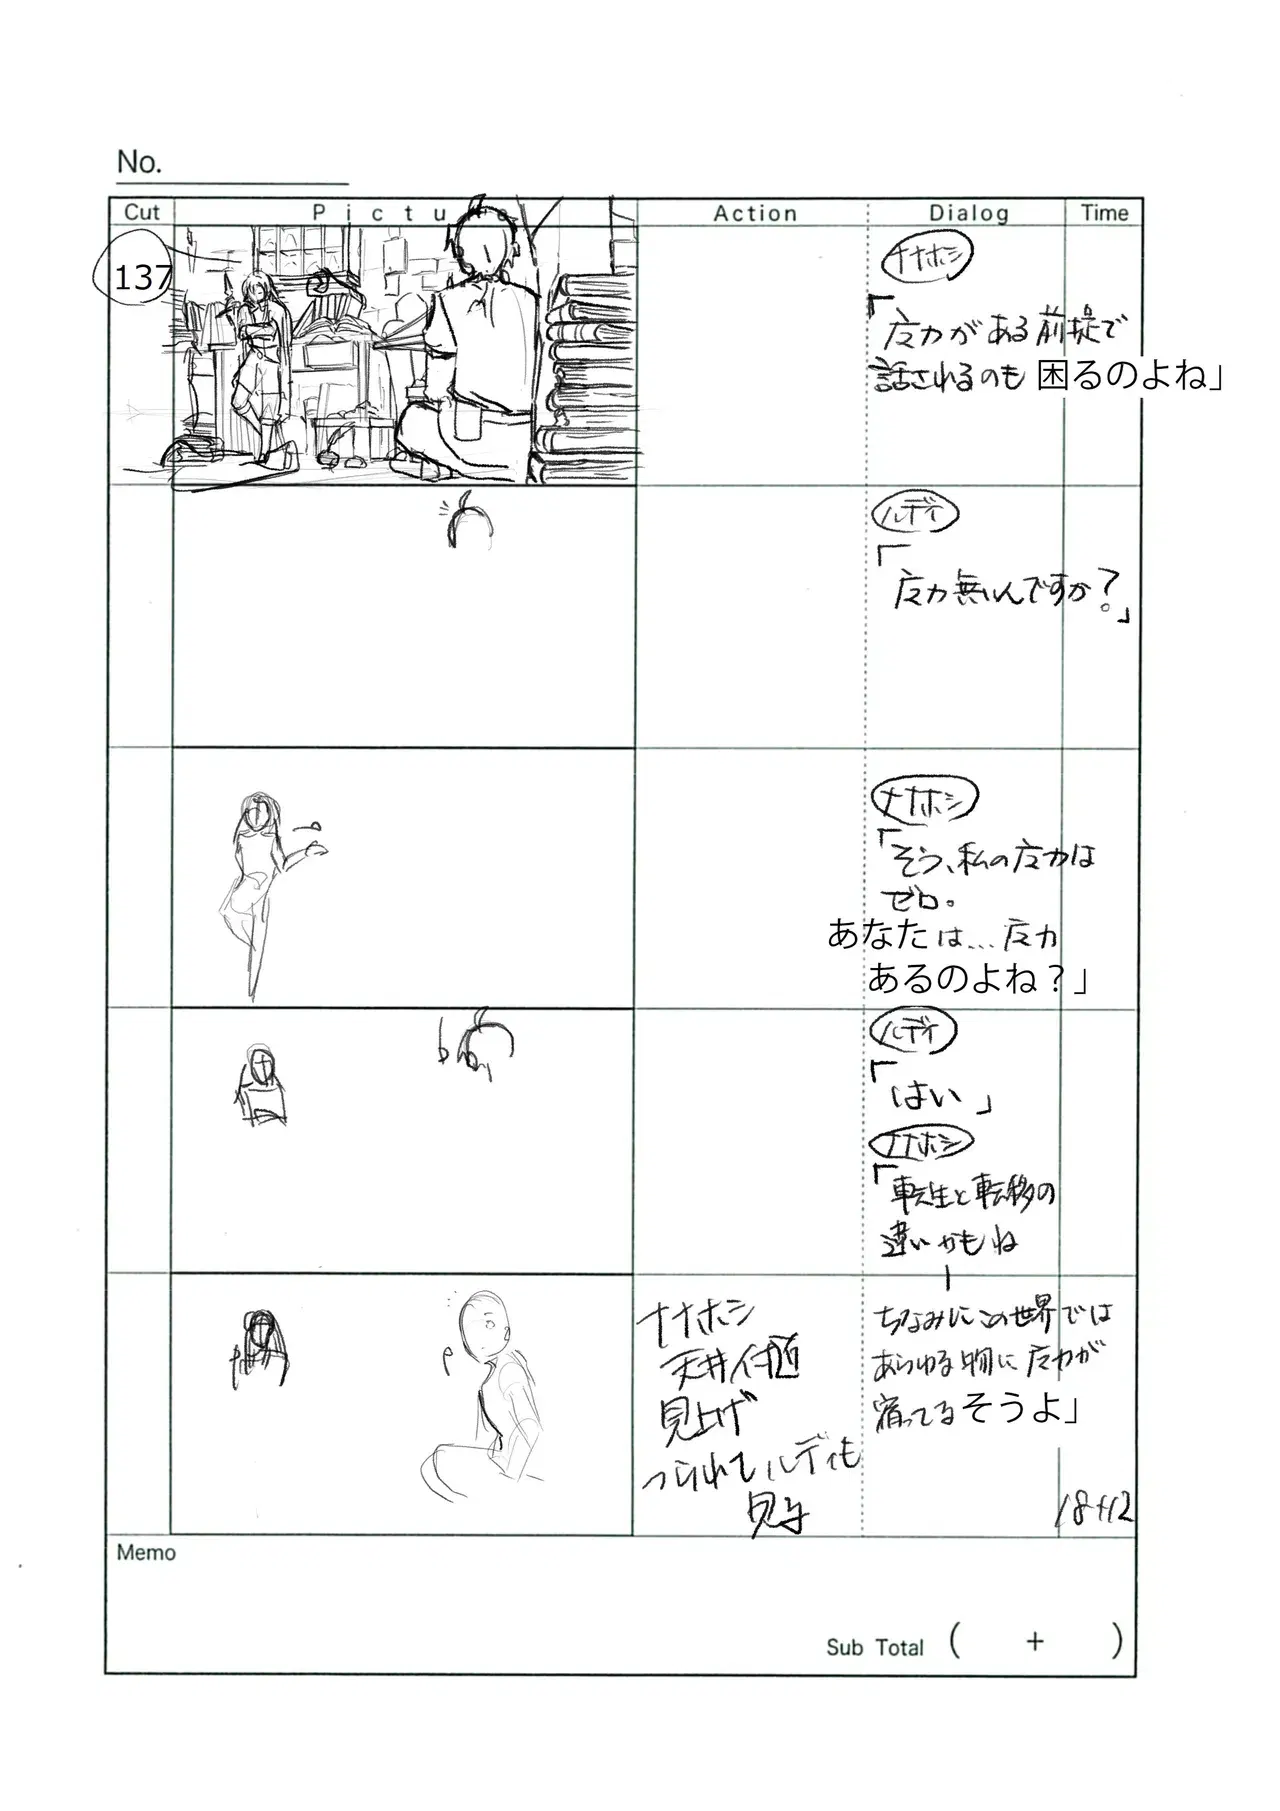 No.
Cut Picture Action Dialog Time
137
ナナホシ
「广力がある前提で
話されるのも困るのよね」
ルディ
「广力無いんですか?」
ナナホシ
「そう、私の广力は
ゼロ。
あなたは...广力
あるのよね?」
ルディ
「はい」
ナナホシ
「転生と転移の
違いかもね
ナナホシ
天井付近
見上げ
つられてルディも
見る
ちなみにこの世界では
あらゆる物に广力が
宿ってるそうよ」
18+12
Memo
Sub Total ( + )